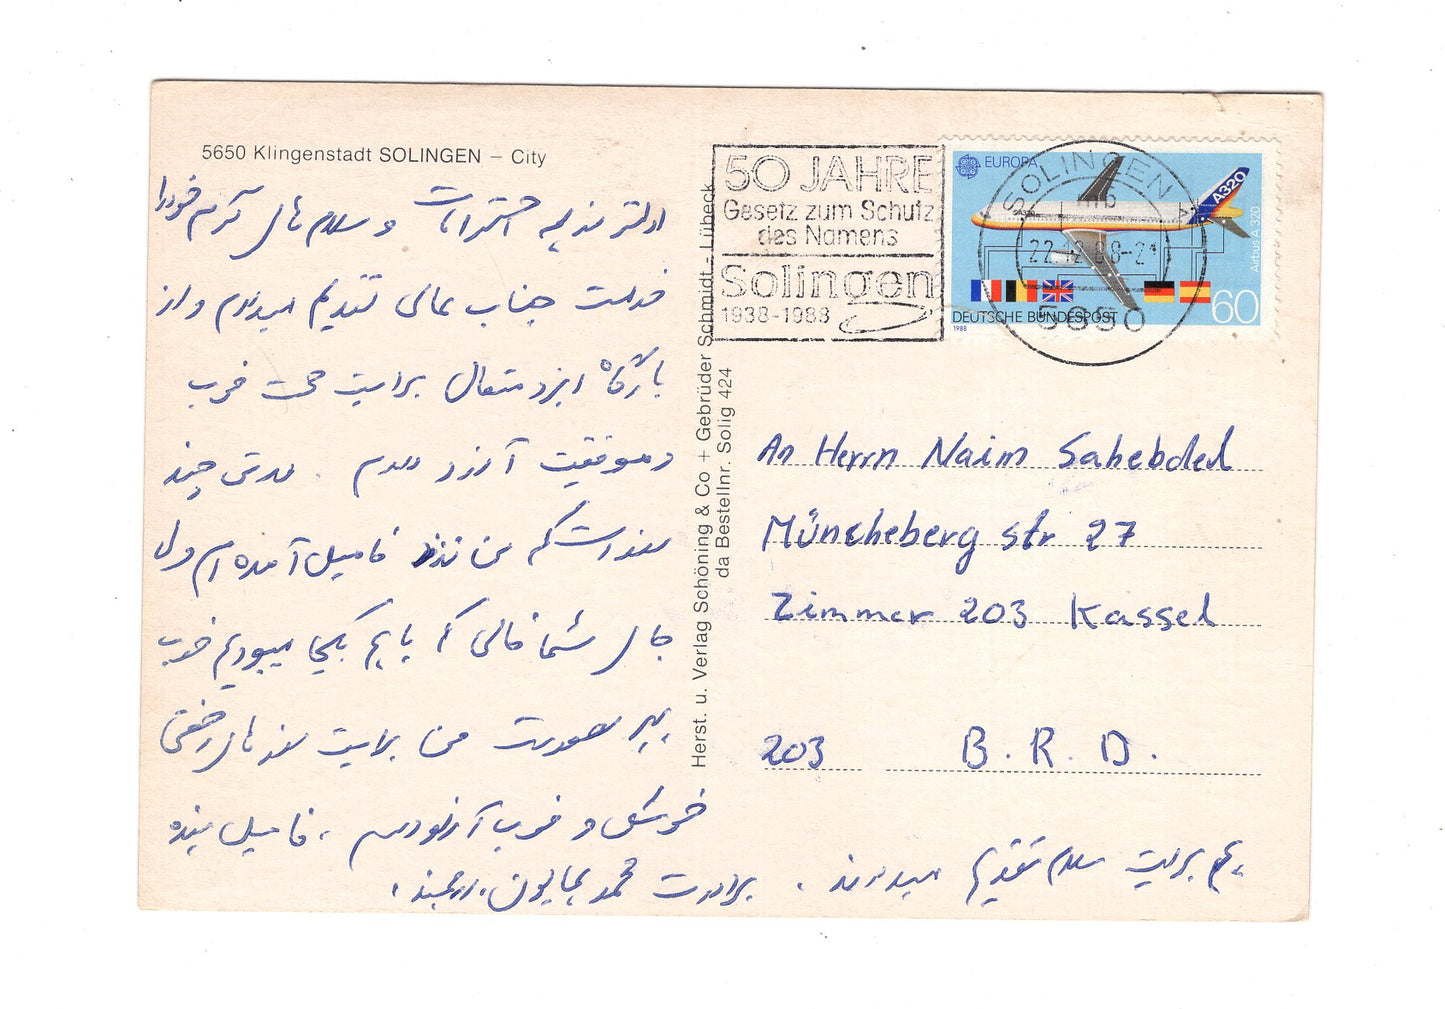 5650 Klingenstadt SOLINGEN – City
احترامات و سلام های گرم خودرا
خدمت جناب عالی تقدیم میدارم و از
بارگاه ایزد متعال برایت صحت خوب
و موفقیت آرزو دارم . مدتی چند
است که من نزد فامیل آمده ام ولی
جای شما خالی که با هم یکجا میبودیم خوب
بهر صورت من برایت رخصتی
خوش و خوب آرزو دارم ، فامیل بنده
هم برایت سلام تقدیم میدارند .
برادرت محمد همایون ارجمند .
Herst. u. Verlag Schöning & Co + Gebrüder Schmidt - Lübeck
da Bestellnr. Solig 424
50 JAHRE
Gesetz zum Schutz
des Namens
Solingen
1938-1988
SOLINGEN 1
22.12.88-21
5650
EUROPA
A320
Airbus A 320
60
DEUTSCHE BUNDESPOST
1988
An Herrn Naim Sahebdel
Müncheberg str 27
Zimmer 203 Kassel
203 B. R. D.